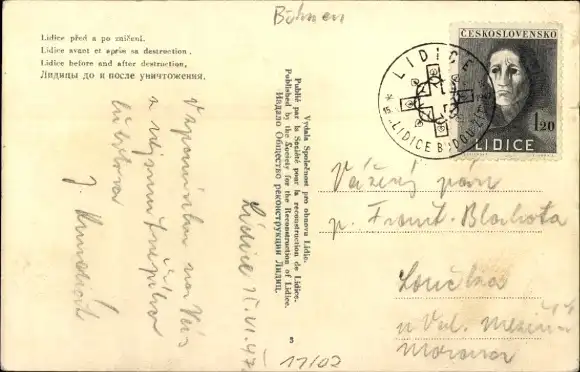 Böhmen
Lidice před a po zničení.
Lidice avant et après sa destruction.
Lidice before and after destruction,
Лидицы до и после уничтожения.
Vydala Společnost pro obnovu Lidic.
Publié par la Société pour la reconstruction de Lidice.
Published by the Society for the Reconstruction of Lidice.
Издало Общество реконструкции Лидиц.
3
ČESKOSLOVENSKO
1.20
LIDICE
LIDICE
LIDICE BUDOU ŽÍT
Vzpomínku na Vás
a
J.
Lidice 15.VI.47
Vážený pan
p. Frant. Blahota
Loučka
u Val. Meziříčí
Morava
17/02